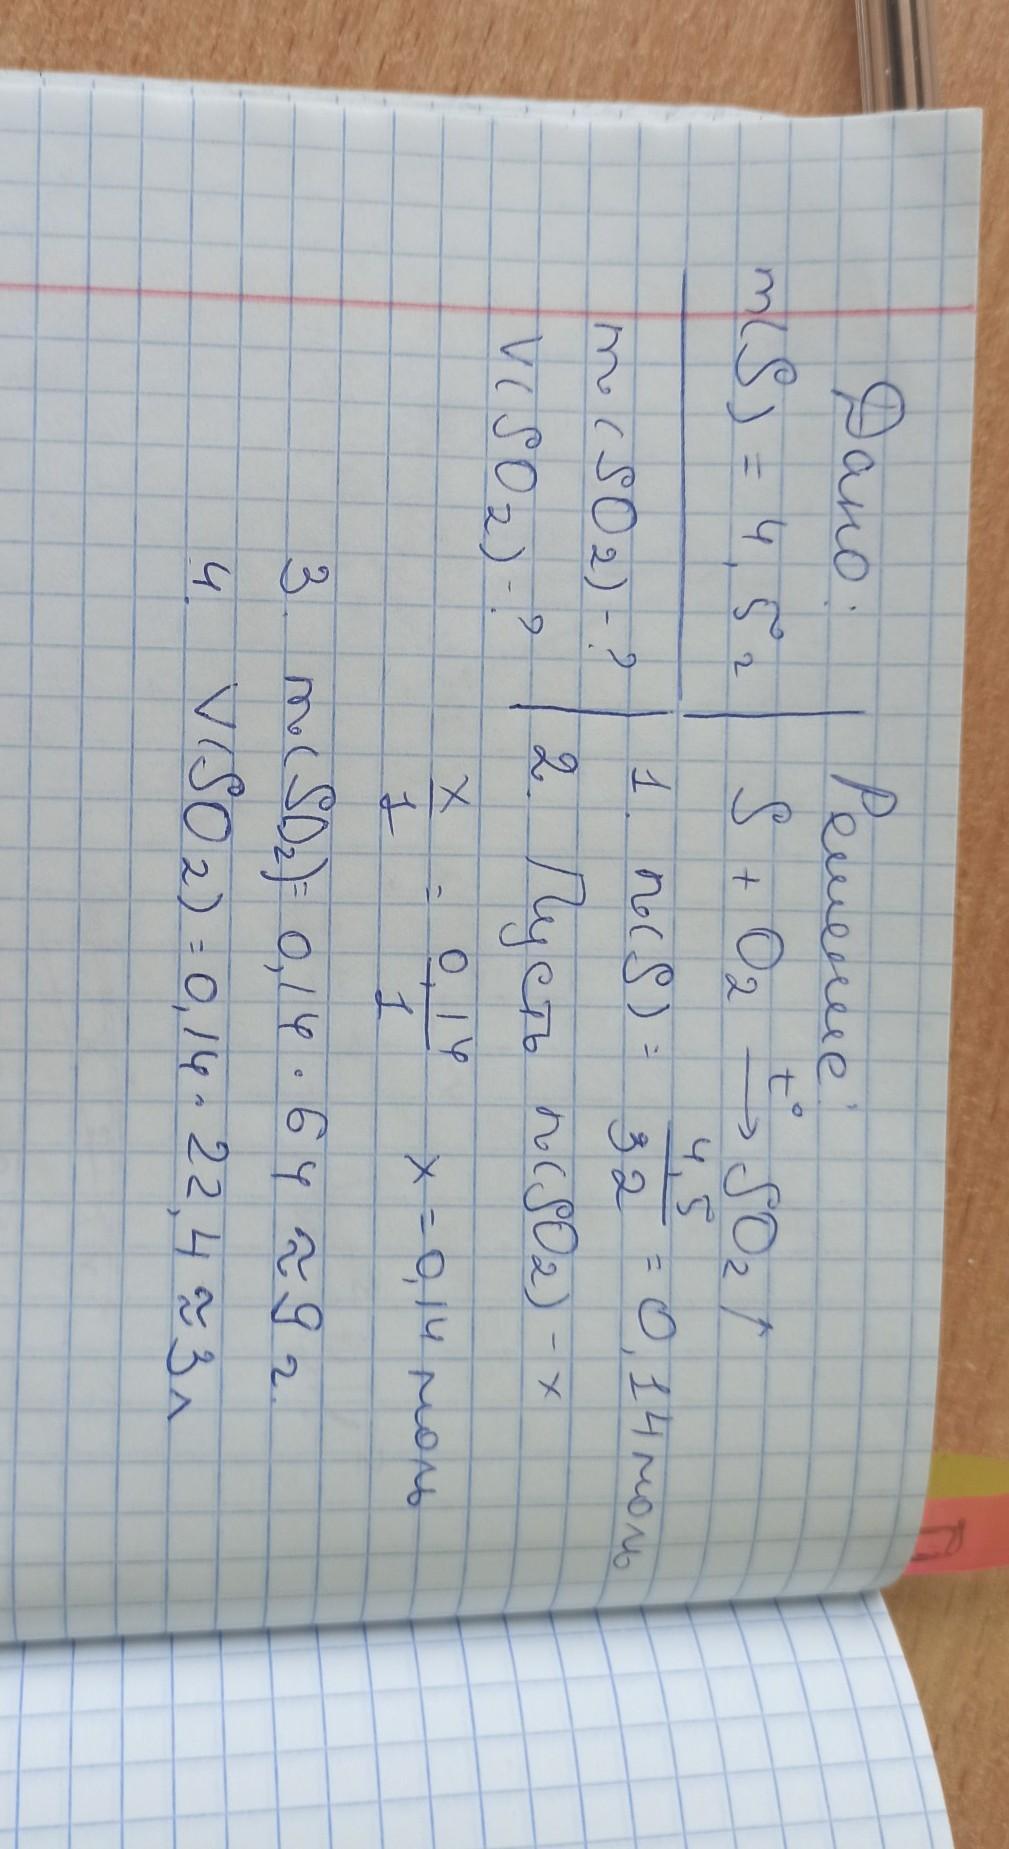 Дано:
m(S) = 4,5 г
m(SO2) - ?
V(SO2) - ?
Решение:
S + O2 t°→ SO2↑
1. n(S) = 4,5/32 = 0,14 моль
2. Пусть n(SO2) - x
x/1 = 0,14/1 x = 0,14 моль
3. m(SO2) = 0,14 · 64 ≈ 9 г.
4. V(SO2) = 0,14 · 22,4 ≈ 3 л